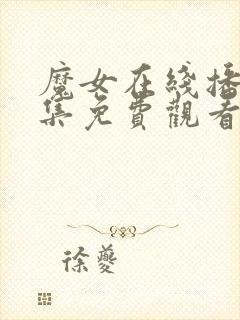 魔女在线播
集免費觀看
徐夔